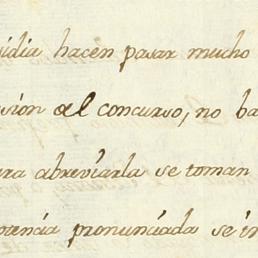 sidia hacen pasar mucho
sion del concurso, no ba
ra abreviarla se toman
tancia pronunciada se in